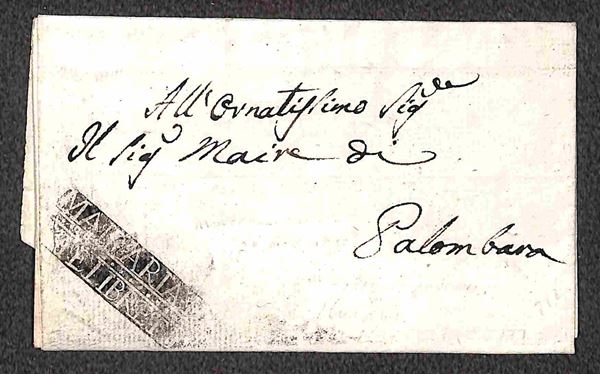 All' Ornatissimo Sig.re
Il Sig.r Maire di
Palombara
MAR